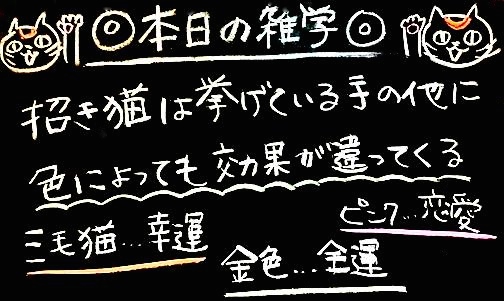 ◎本日の雑学◎
招き猫は挙げている手の他に
色によっても効果が違ってくる
三毛猫…幸運
ピンク…恋愛
金色…金運